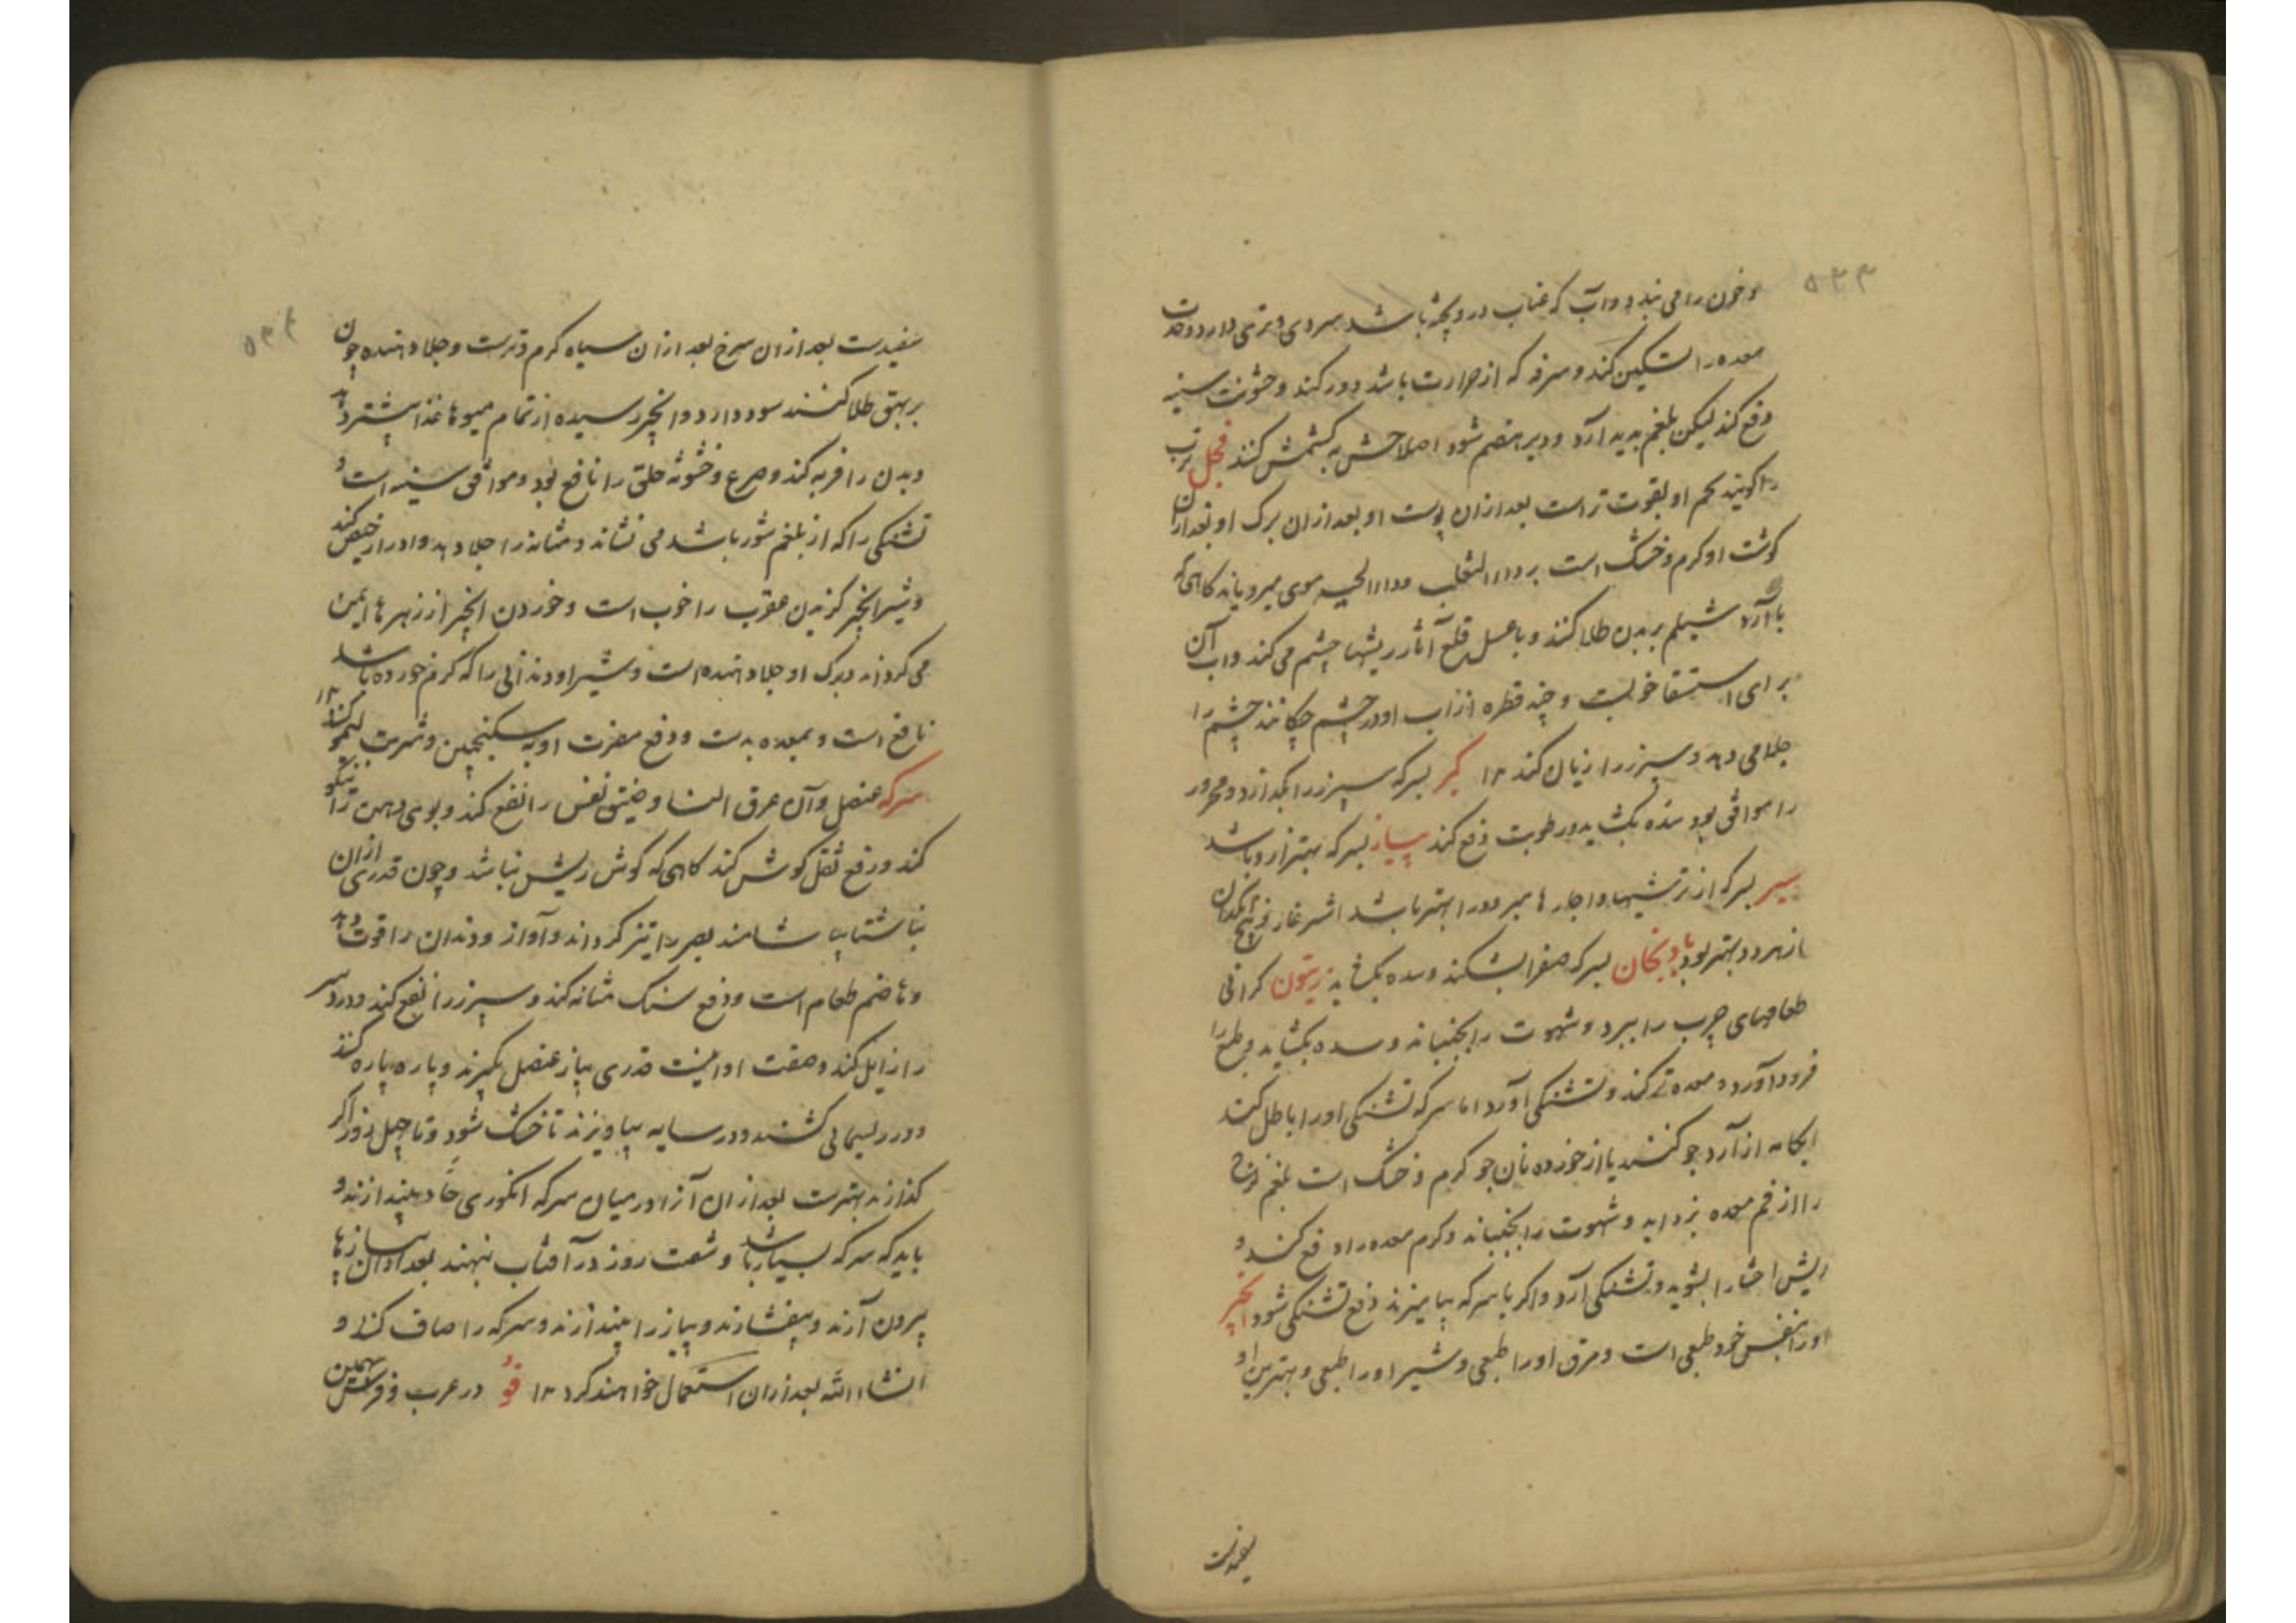 ۵۳۳
و خون را می بندد و آب که عناب درو پخته باشد سردی و تری دارد و حدت
معده را تسکین کند و سرفه که از حرارت باشد دور کند و خشونت سینه
دفع کند لیکن بلغم پدید آرد و دیر هضم شود اصلاحش به کشمش کنند فجل ترب
را گویند تخم او بقوت تر است بعد ازان پوست او بعد ازان برک او بعد ازان
کوشت او کرم و خشک است بر داء الثعلب و داء الحیه موی میرویاند کاهی که
با آرد شیلم بر بدن طلا کنند و با عسل قلع آثار ریشها چشم می کند و آب آن
برای استسقا خوبست و چند قطره از آب او در چشم چکانند چشم را
جلا می دهد و سپرز را زیان کند ۱۲ کبر بسرکه سپرز را بکدازد و محرور
را موافق بود سده بکشاید و رطوبت دفع کند پیاز بسرکه بهتر ازو باشد
سیر بسرکه از ترشیها و اچارها مبرود را بهتر باشد اشترغاز و بیخ انکدان
از هر دو بهتر بود بادنجان بسرکه صفرا بشکند و سده بکشاید زیتون کرانی
طعامهای چرب را ببرد و شهوت را بجنباند و سده بکشاید و طبع را
فرود آورد و معده قوی کند و تشنکی آورد اما سرکه تشنکی او را باطل کند
آبکامه از آرد جو کنند یا از خورده نان جو کرم و خشک است بلغم لزج
را از فم معده بزداید و شهوت را بجنباند و کرم معده را دفع کند و
ریش احشا را بشوید و تشنکی آرد و اکر با سرکه بیامیزند دفع تشنکی شود انجیر
او را بنفس خود طبعی است و مرق او را طبعی و شیر او را طبعی و بهترین او
سفیدست
۵۳۴
سفیدست بعد ازان سرخ بعد ازان سیاه کرم و ترست و جلا دهنده چون
بر بهق طلا کنند سود دارد و انجیر رسیده از تمام میوها غذا بیشتر دهد
و بدن را فربه کند و صرع و خشونة حلق را نافع بود و موافق سینه است و
تشنکی را که از بلغم شور باشد می نشاند و مثانه را جلا دهد و ادرار حیض کند
و شیر انجیر کزیدن عقرب را خوب است و خوردن انجیر از زهرها ایمن
می کرداند و برک او جلا دهنده است و شیر او دندانی را که کرم خورده باشد
نافع است و بمعده بدست و دفع مضرت او به سکنجبین و شربت لیمو کنند ۱۲
سرکه عنصل و آن عرق النسا و ضیق نفس را نفع کند و بوی دهن را نیکو
کند و رفع ثقل کوش کند کاهی که کوش ریش نباشد و چون قدری ازان
بناشتا بیاشامند بصر را تیز کرداند و آواز و دندان را قوت دهد
و هاضم طعام است و دفع سنک مثانه کند و سپرز را نفع کند و درد سر
را زایل کند و صفت او اینست قدری پیاز عنصل بکیرند و پاره پاره کنند
و در ریسمانی کشند و در سایه بیاویزند تا خشک شود و تا چهل روز اکر
کذارند بهترست بعد ازان آنرا در میان سرکه انکوری حاد بیندازند و
باید که سرکه بسیار باشد و شصت روز در آفتاب بنهند بعد ازان پیازها
بیرون آرند و بیفشارند و پیاز را بیندازند و سرکه را صاف کنند و
انشاء الله بعد ازان استعمال خواهند کرد ۱۲ فو در عرب و فرس بهمین